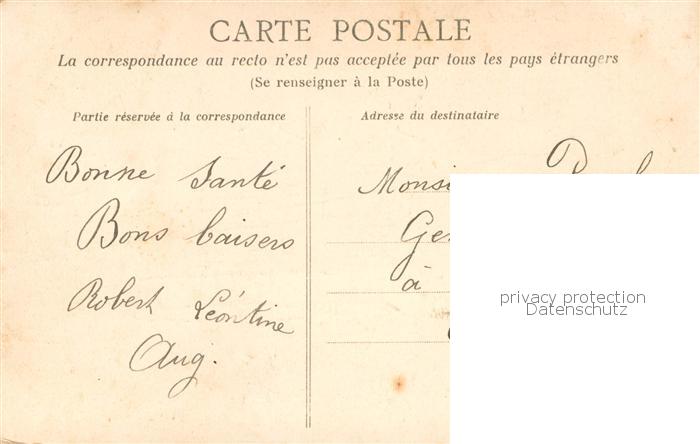 CARTE POSTALE
La correspondance au recto n'est pas acceptée par tous les pays étrangers
(Se renseigner à la Poste)
Partie réservée à la correspondance
Adresse du destinataire
Bonne Santé
Bons baisers
Robert Léontine
Aug.
à
privacy protection
Datenschutz